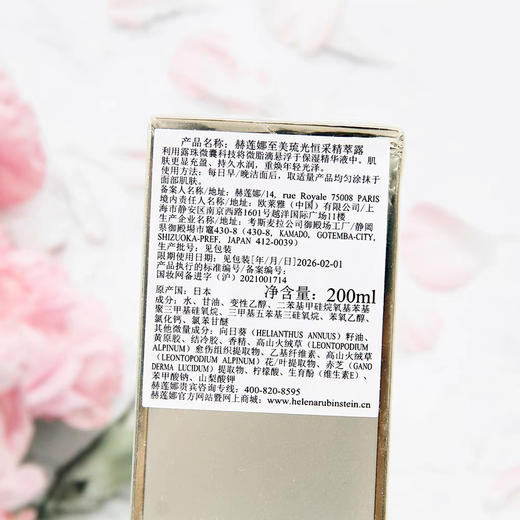 产品名称：赫莲娜至美琉光恒采精萃露
利用露珠微囊科技将微脂滴悬浮于保湿精华液中。肌
肤更显充盈、持久水润，重焕年轻光泽。
使用方法：每日早/晚洁面后，取适量产品均匀涂抹于
面部肌肤。
备案人名称/地址：赫莲娜/14, rue Royale 75008 PARIS
境内责任人名称/地址：欧莱雅（中国）有限公司/上
海市静安区南京西路1601号越洋国际广场11楼
生产企业名称/地址：考斯麦拉公司御殿场工厂/静冈
県御殿場市竈430-8 (430-8, KAMADO, GOTEMBA-CITY,
SHIZUOKA-PREF, JAPAN 412-0039)
生产批号：见包装
限期使用日期：见包装[年/月/日]2026-02-01
产品执行的标准编号/备案编号：
国妆网备进字（沪）2021001714
原产国：日本 净含量：200ml
成分：水、甘油、变性乙醇、二苯基甲硅烷氧基苯基
聚三甲基硅氧烷、三甲基五苯基三硅氧烷、苯氧乙醇、
氯化钙、氯苯甘醚
其他微量成分：向日葵（HELIANTHUS ANNUUS）籽油、
黄原胶、结冷胶、香精、高山火绒草（LEONTOPODIUM
ALPINUM）愈伤组织提取物、乙基纤维素、高山火绒草
（LEONTOPODIUM ALPINUM）花/叶提取物、赤芝（GANO
DERMA LUCIDUM）提取物、柠檬酸、生育酚（维生素E）、
苯甲酸钠、山梨酸钾
赫莲娜贵宾咨询专线：400-820-8595
赫莲娜官方网站暨网上商城：www.helenarubinstein.cn